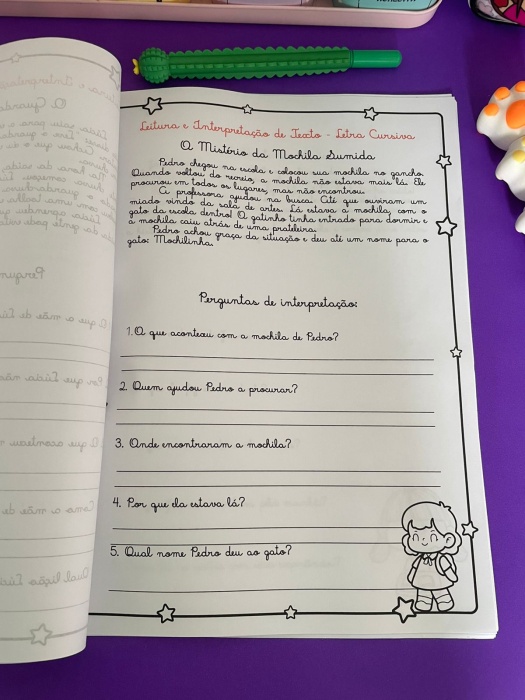 Leitura e Interpretação de Texto - Letra Cursiva
O Mistério da Mochila Sumida
Pedro chegou na escola e colocou sua mochila no gancho.
Quando voltou do recreio, a mochila não estava mais lá. Ele
procurou em todos os lugares, mas não encontrou.
A professora ajudou na busca. Até que ouviram um
miado vindo da sala de artes. Lá estava a mochila, com o
gato da escola dentro! O gatinho tinha entrado para dormir e
a mochila caiu atrás de uma prateleira.
Pedro achou graça da situação e deu até um nome para o
gato: Mochilinha.
Perguntas de interpretação:
1. O que aconteceu com a mochila de Pedro?
2. Quem ajudou Pedro a procurar?
3. Onde encontraram a mochila?
4. Por que ela estava lá?
5. Qual nome Pedro deu ao gato?